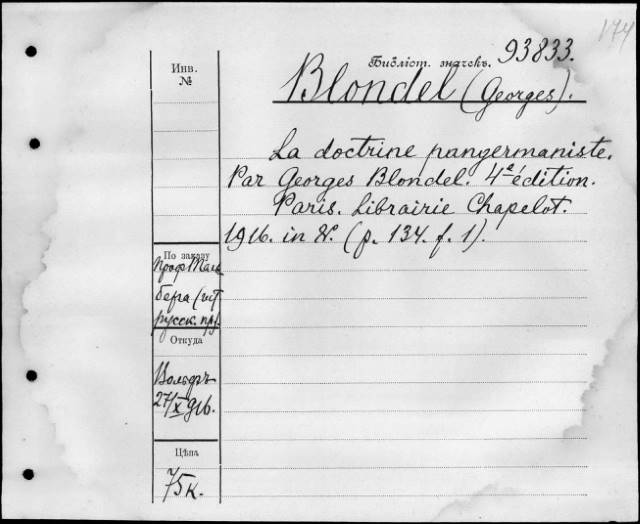 174
Библіот. значекъ. 93833.
Инв.
№
Blondel (Georges).
La doctrine pangermaniste.
Par Georges Blondel. 4e édition.
Paris. Librairie Chapelot.
1916. in 8. (p. 134. f. 1).
По заказу
Проф. Таль
бера (ист
русск. пр).
Откуда
Вольфъ
27/X 916.
Цѣна
75к.